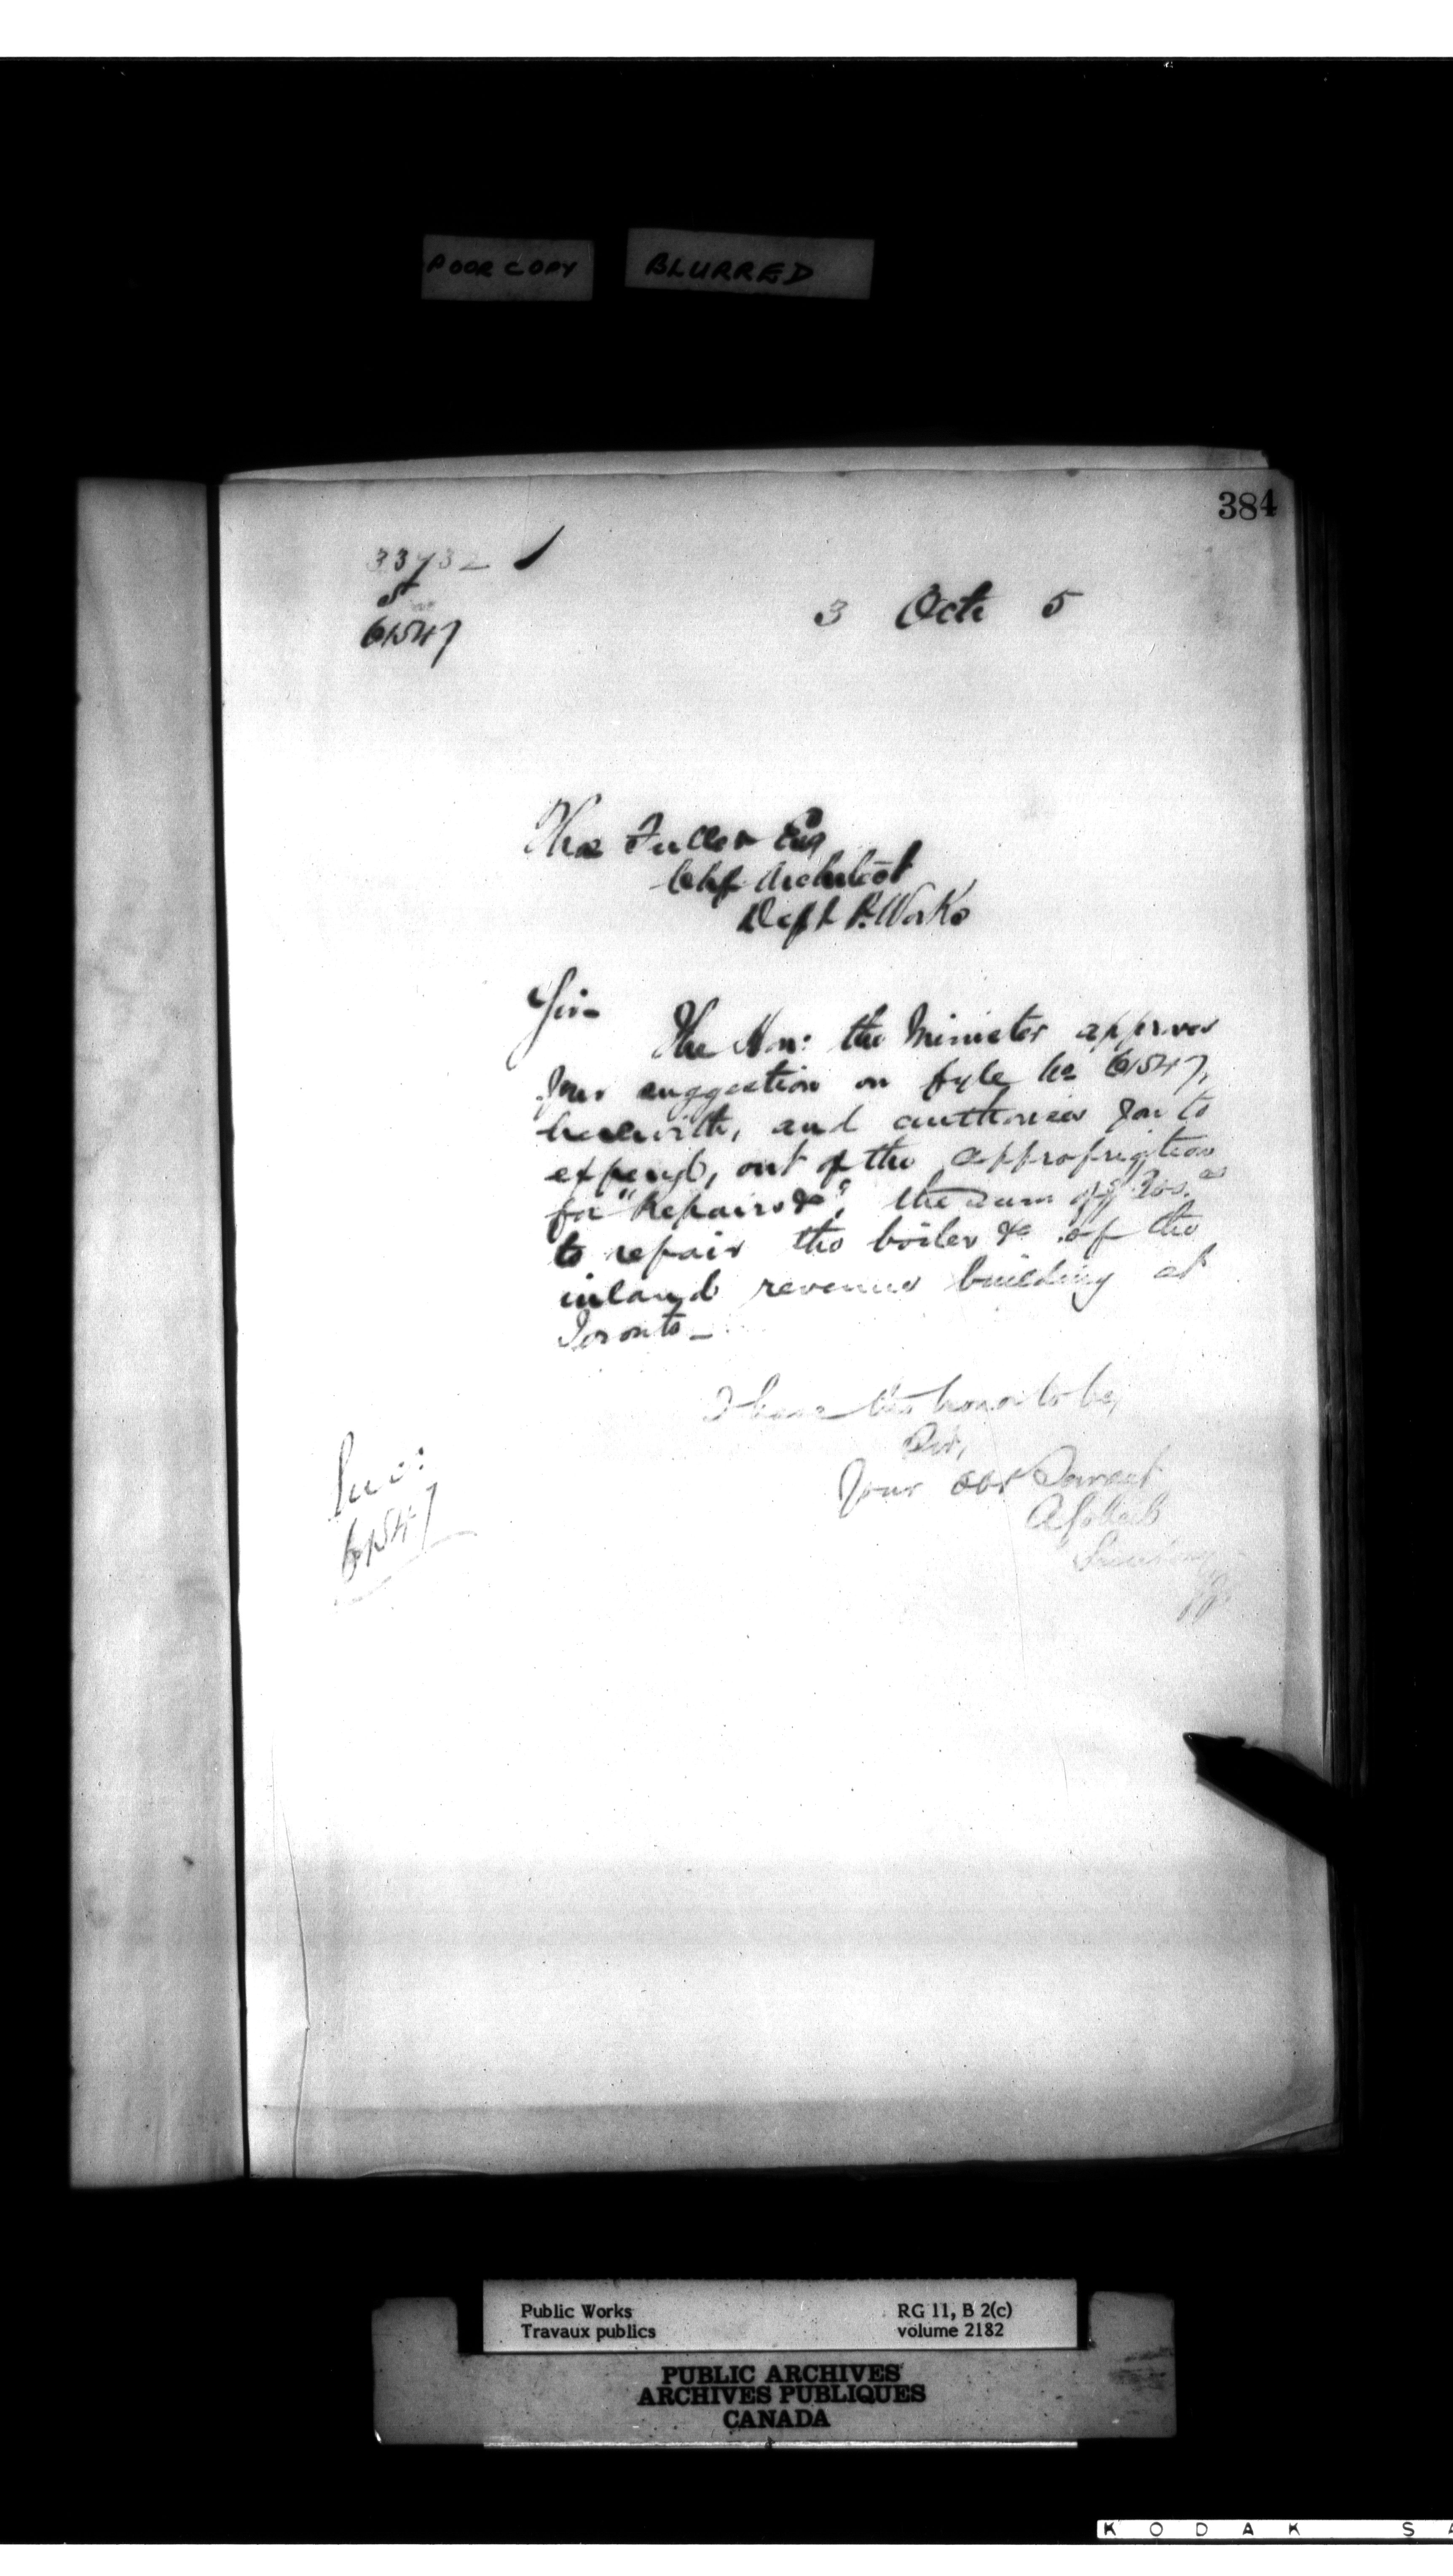 POOR COPY BLURRED
384
33732
61547
3 Octr 5
Thos Fuller Esq
Chf Architect
Dept P. Works
Sir
The Hon: the Minister approves
your suggestion on fyle No 61547,
herewith, and authorises you to
expend, out of the appropriation
for "Repairs &c", the sum of $
to repair the boiler &c of the
inland revenue building at
Toronto_
I have the honor to be,
Sir,
Your obt Servant
A Gobeil
Secretary
61547
Public Works RG 11, B 2(c)
Travaux publics volume 2182
PUBLIC ARCHIVES
ARCHIVES PUBLIQUES
CANADA
KODAK SA